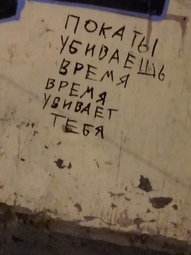 ПОКАТЫ
УБИВАЕШЬ
ВРЕМЯ
ВРЕМЯ
УБИВАЕТ
ТЕБЯ